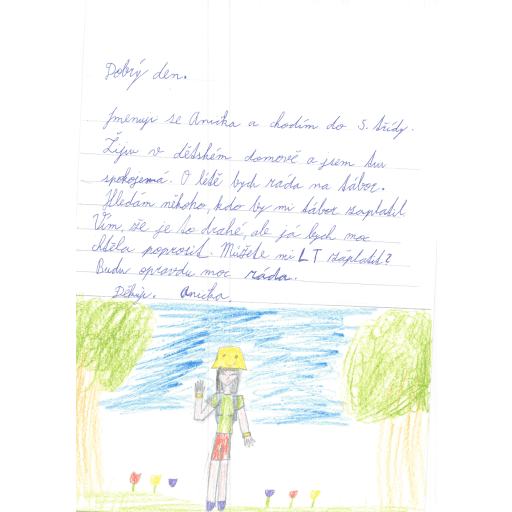 Dobrý den.
Jmenuji se Anička a chodím do 5. třídy.
Žiju v dětském domově a jsem tu
spokojená. O létě bych ráda na tábor.
Hledám někoho, kdo by mi tábor zaplatil
Vím, že je to drahé, ale já bych moc
chtěla poprosit. Můžete mi LT zaplatit?
Budu opravdu moc ráda.
Děkuji. Anička.